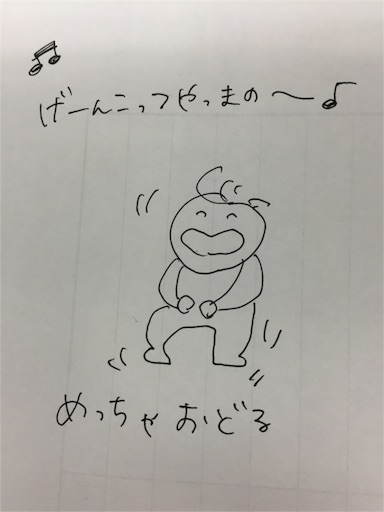 げーんこっつやっまの〜♪
めっちゃおどる